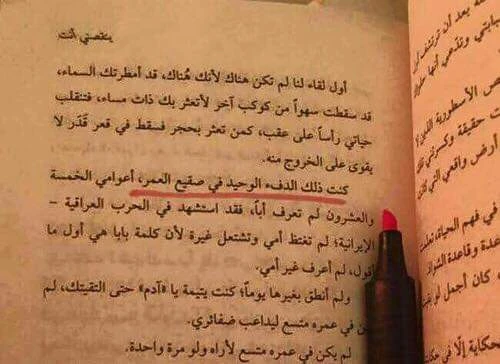 ينقصني أنت
أول لقاء لنا لم تكن هناك لأنك هُناك، قد أمطرتك السماء،
قد سقطت سهواً من كوكب آخر لأتعثر بك ذات مساء، فتنقلب
حياتي رأساً على عقب، كمن تعثر بحجر فسقط في قعر قَدَر لا
يقوى على الخروج منه.
كنت ذلك الدفء الوحيد في صقيع العمر، أعوامي الخمسة
والعشرون لم تعرف أباً، فقد استشهد في الحرب العراقية -
الإيرانية؛ لم تغتظ أمي وتشتعل غيرة لأن كلمة بابا هي أول ما
أقول، لم أعرف غير أمي.
ولم أنطق بغيرها يوماً؛ كنت يتيمة يا «آدم» حتى التقيتك، لم
في عمره متسع ليداعب ضفائري.
لم يكن في عمره متسع لأراه ولو مرة واحدة.
بعد أن ترتشف
وتدعي أنها
ص الأسطورية اللذين لا
حقيقة وكسرتني تلك
أرض واقعي التي
في فهم الحياة،
وقاعدة
كان أجمل لو
الحكاية إلّا في